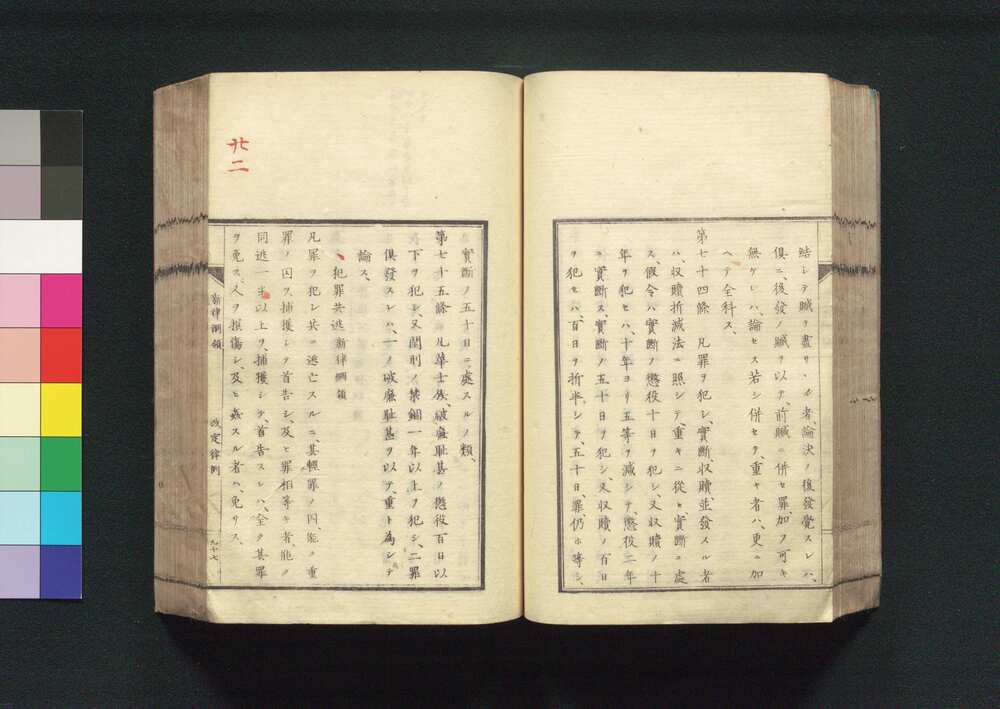 結シテ贓ヲ盡サヽル者、論決ノ後發覺スレハ、
倶ニ、後發ノ贓ヲ以テ、前贓ニ併セ罪、加フ可キ
無ケレハ、論セス若シ併セテ、重キ者ハ、更ニ加
ヘテ全科ス、
第七十四條 凡罪ヲ犯シ、實斷収贖並發スル者
ハ、収贖折減法ニ照シテ、重キニ從ヒ、實斷ニ處
ス、假令ハ實斷ノ懲役十日ヲ犯シ、又収贖ノ十
年ヲ犯セハ、十年ヨリ五等ヲ減シテ、懲役二年
ニ實斷ス、實斷ノ五十日ヲ犯シ、又収贖ノ百日
ヲ犯セハ、百日ヲ折半シテ、五十日、罪、仍ホ等シ、
實斷ノ五十日ニ、處スルノ類、
第七十五條 凡華士族、破廉恥甚ノ懲役百日以
下ヲ犯シ、又閏刑ノ禁錮一年以上ヲ犯シ、二罪
倶發スレハ、一ノ破廉恥甚ヲ以テ、重ト為シテ
論ス、
犯罪共逃 新律綱領
凡罪ヲ犯シ共ニ逃亡スルニ、其輕罪ノ囚、能ク重
罪ノ囚ヲ捕獲シテ首告シ、及ヒ罪相等キ者、能ク
同逃一半以上ヲ、捕獲シテ、首告スレハ、全ク其罪
ヲ免ス、人ヲ損傷シ、及ヒ姦スル者ハ、免サス、
新律綱領 改定律例 九十七
廿二